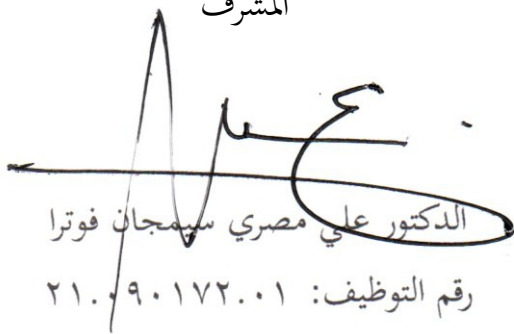 المشرف
الدكتور علي مصري سيمجان فوترا
رقم التوظيف: ٢١.٠٩٠١٧٢.٠١